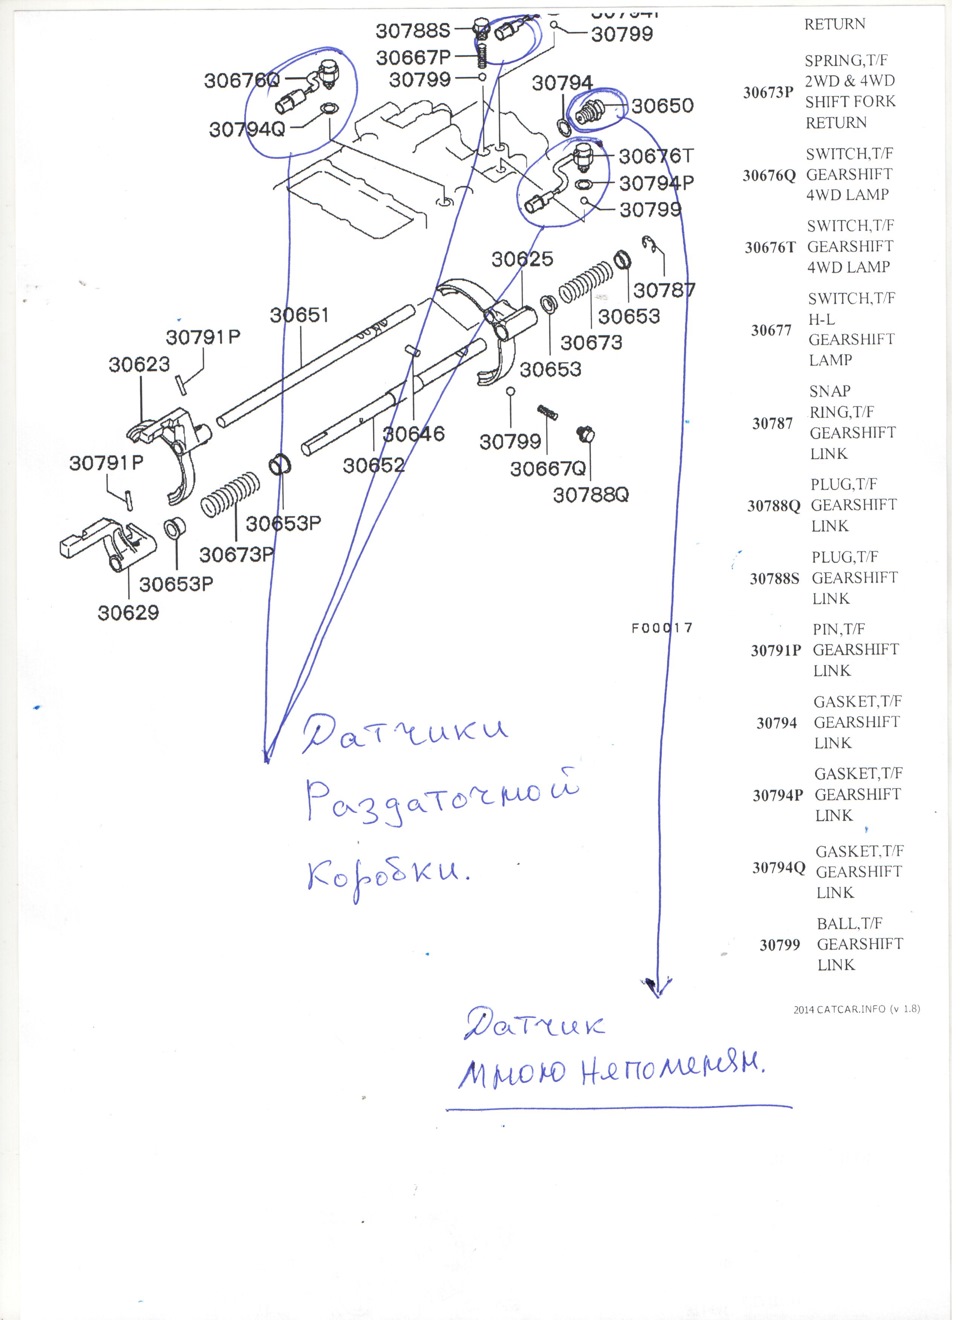 30794P
30788S
30799
30667P
30799
30676Q
30794
30650
30794Q
30676T
30794P
30799
30625
30787
30653
30651
30673
30791P
30623
30653
30646
30799
30652
30667Q
30791P
30788Q
30653P
30673P
30653P
30629
F00017
Датчики
Раздаточной
коробки.
Датчик
мною непоменян.
RETURN
30673P
SPRING,T/F
2WD & 4WD
SHIFT FORK
RETURN
30676Q
SWITCH,T/F
GEARSHIFT
4WD LAMP
30676T
SWITCH,T/F
GEARSHIFT
4WD LAMP
30677
SWITCH,T/F
H-L
GEARSHIFT
LAMP
30787
SNAP
RING,T/F
GEARSHIFT
LINK
30788Q
PLUG,T/F
GEARSHIFT
LINK
30788S
PLUG,T/F
GEARSHIFT
LINK
30791P
PIN,T/F
GEARSHIFT
LINK
30794
GASKET,T/F
GEARSHIFT
LINK
30794P
GASKET,T/F
GEARSHIFT
LINK
30794Q
GASKET,T/F
GEARSHIFT
LINK
30799
BALL,T/F
GEARSHIFT
LINK
2014 CATCAR.INFO (v 1.8)